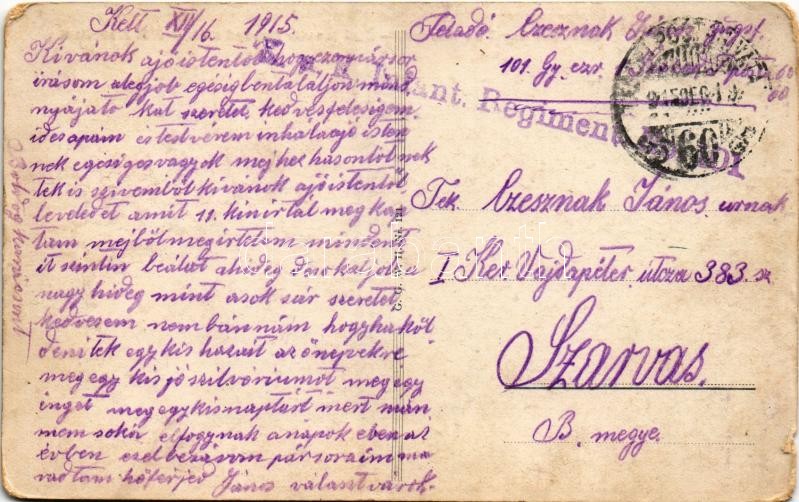 Kelt XII/16. 1915.
Kivánok ajóistentöl hogy ezenpársor
irásom alegjob egésigbentaláljon mind
nyájato kat szeretet kedvesfeleségem
idesapám éstestverem inhálaajó isten
nek egeségesvagyok mejhez hasontól nek
tek is szivemböl kivánok ajóistentöl
leveledet amit 11. kinirtál megkap
tam mejböl megirtelom mindent
it szintin beálot ahideg de
nagy hideg mint a sok sár szeretet
kedvesem nem bánnám hogyha köl
denitek egy kis hazait az ünepekre
meg egy kis jó szilvóriumot meg egy
inget meg egykisnaptárt mert mán
nem soká elfogynak anapok eben az
évben ezel bezárom pár soraim ma
radtam hőférjed János választvárok.
Feladó: Czesznak János
101. Gy. ezr.
60
K. u. K. Infant. Regiment
60
Tek. Czesznak János urnak
I Ker Vajdapéter utcza 383. sz
Szarvas.
B. megye.
darabanth